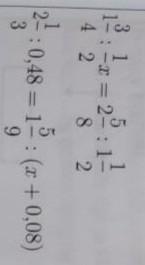 1 3/4 : 1/2 x = 2 5/8 : 1 1/2
2 1/3 : 0,48 = 1 5/9 : (x + 0,08)